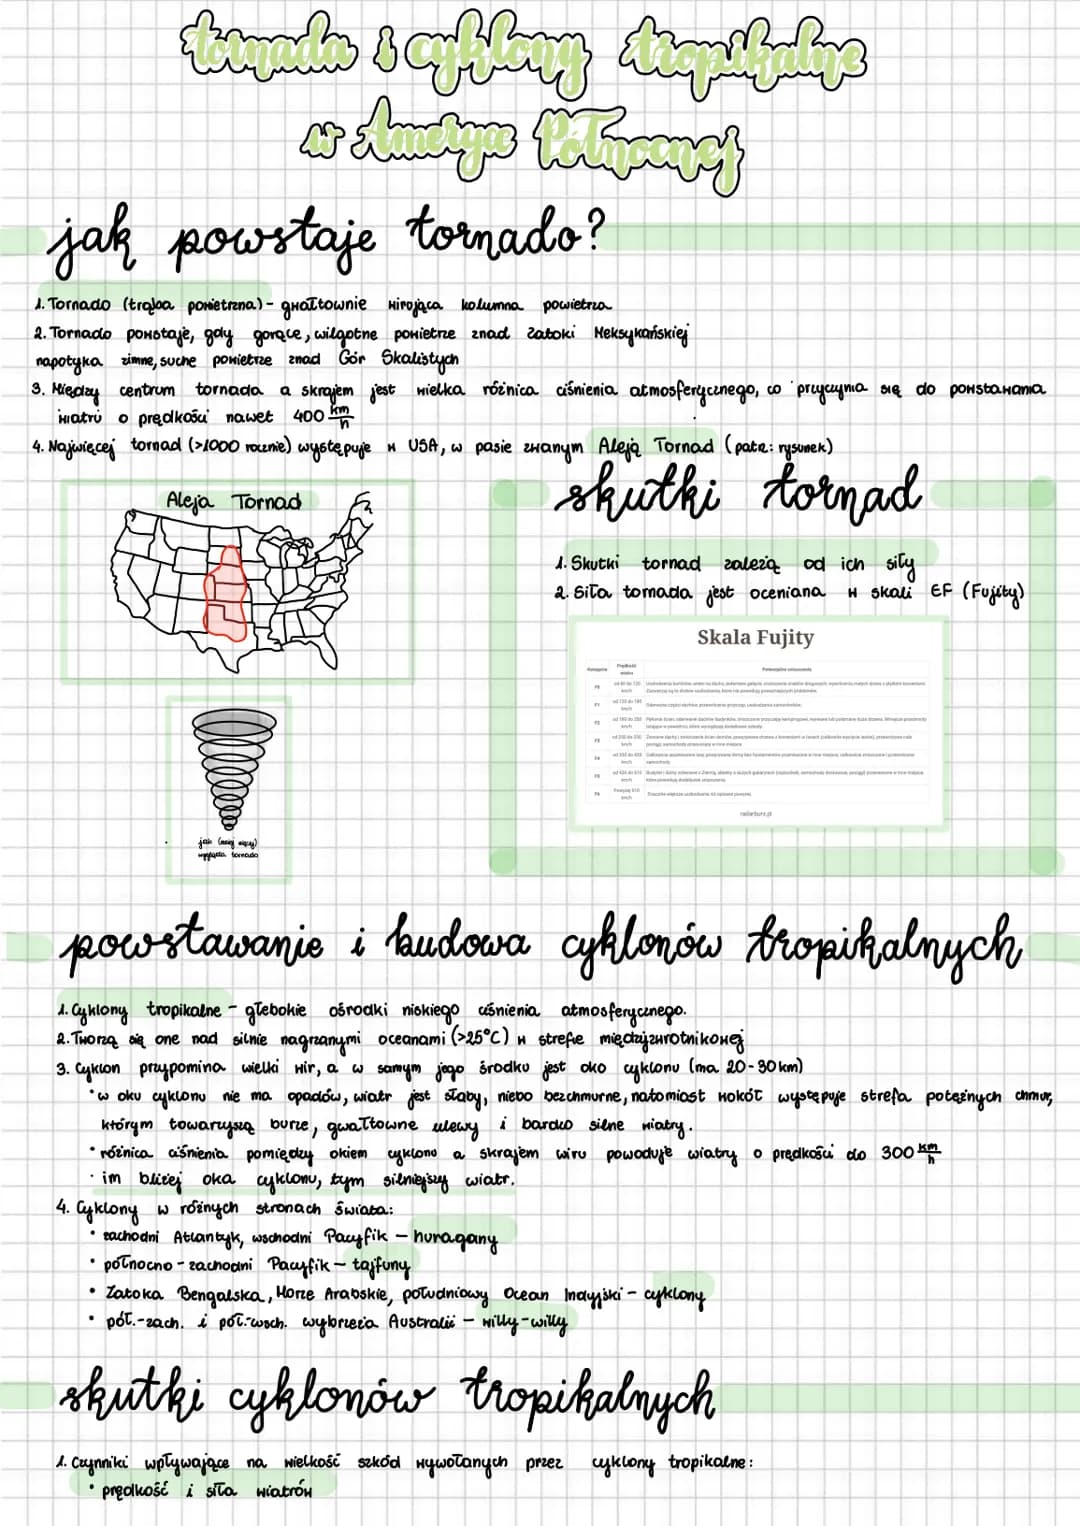 tornada i cyklony tropikalne
w Ameryce Północnej
jak powstaje tornado?
1. Tornado (trąba powietrzna) - gwałtownie wirująca kolumna powietrza
2. Tornado powstaje, gdy gorące, wilgotne powietrze znad Zatoki Meksykańskiej
napotyka zimne, suche powietrze znad Gór Skalistych
3. Między centrum tornada a skrajem jest wielka różnica ciśnienia atmosferycznego, co przyczynia się do powstawania
wiatru o prędkości nawet 400 km/h
4. Najwięcej tornad (>1000 rocznie) występuje w USA, w pasie zwanym Aleją Tornad (patrz: rysunek)
Aleja Tornad
jak (mniej więcej)
wygląda tornado
skutki tornad
1. Skutki tornad zależą od ich siły
2. Siła tornada jest oceniana w skali EF (Fujity)
Skala Fujity
Kategoria Prędkość wiatru Potencjalne zniszczenia
F0
F1
F2
F3
F4
F5
F6
radarburz.pl
powstawanie i budowa cyklonów tropikalnych
1. Cyklony tropikalne - głebokie ośrodki niskiego ciśnienia atmosferycznego.
2. Tworzą się one nad silnie nagrzanymi oceanami (>25°C) w strefie międzyzwrotnikowej
3. Cyklon przypomina wielki wir, a w samym jego środku jest oko cyklonu (ma 20-30 km)
• w oku cyklonu nie ma opadów, wiatr jest słaby, niebo bezchmurne, natomiast wokół występuje strefa potężnych chmur,
którym towarzyszą burze, gwałtowne ulewy i bardzo silne wiatry.
• różnica ciśnienia pomiędzy okiem cyklonu a skrajem wiru powoduje wiatry o prędkości do 300 km/h
• im bliżej oka cyklonu, tym silniejszy wiatr.
4. Cyklony w różnych stronach świata:
• zachodni Atlantyk, wschodni Pacyfik - huragany
• północno-zachodni Pacyfik - tajfuny
• Zatoka Bengalska, Morze Arabskie, południowy Ocean Indyjski - cyklony
• półt.-zach. i pół.-wsch. wybrzeża Australii - willy-willy
skutki cyklonów tropikalnych
1. Czynniki wpływające na wielkość szkód wywołanych przez cyklony tropikalne:
• prędkość i siła wiatrów